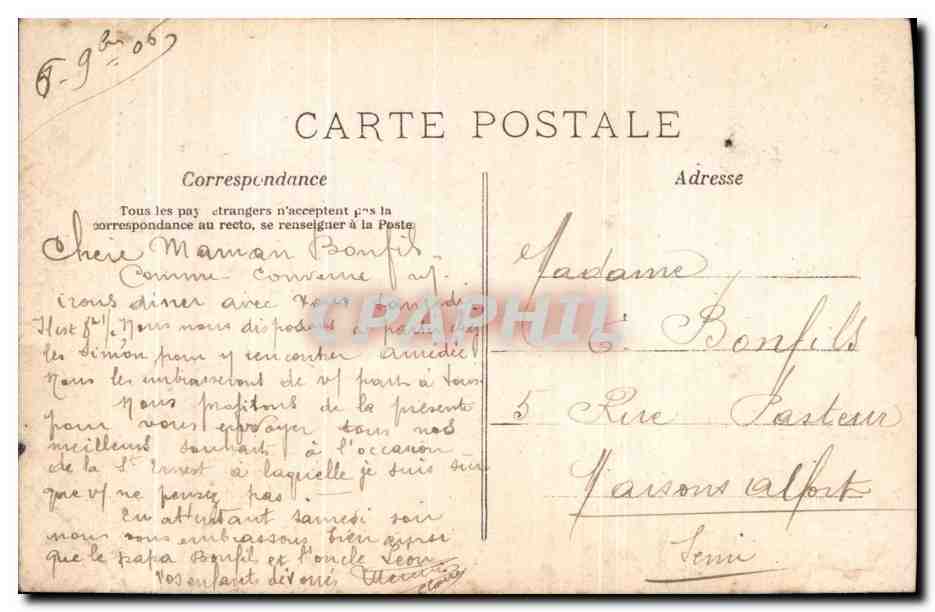 9bre 06
CARTE POSTALE
Correspondance
Adresse
Tous les pay étrangers n'acceptent pas la
correspondance au recto, se renseigner à la Poste
Chere Maman Bonfil
Comme convenue n/
irons diner avec vous samedi
Il est 5h 1/2 Nous nous disposons à partir chez
les Simon pour y rencontrer Amédée
Nous les embrasseront de v/ part à tous
Nous profitons de la présente
pour vous envoyer tous nos
meilleurs souhaits à l'occasion
de la St Ernest à laquelle je suis sur
que v/ ne pensez pas.
En attentant samedi soir
nous vous embrassons bien ainsi
que le papa Bonfil et l'oncle Léon
Vos enfants dévoués
Madame
E. Bonfils
5 Rue Pasteur
Maisons Alfort
Seine
CPAPHIL